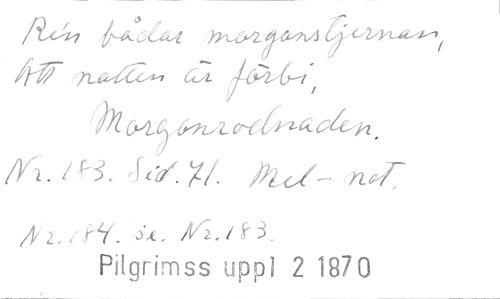 Re'n bådar morgonstjernan,
Att natten är förbi,
Morgonrodnaden.
Nr. 183. Sid. 71. Mel-not.
Nr. 184. se. Nr. 183.
Pilgrimss uppl 2 1870